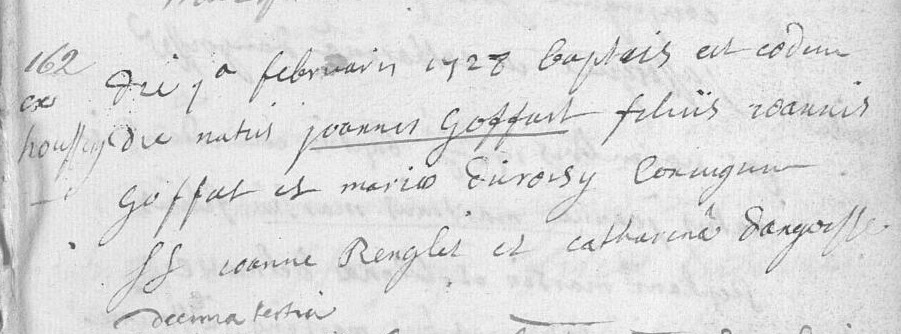 162
ex
houssey
Die 1a februarii 1728 baptzis est eodem
die natus joannes Goffart filius ioannis
Goffart et mariæ Duroisy coniugum
SS ioanne Renglet et catharinâ Dangoisse
decima tertia